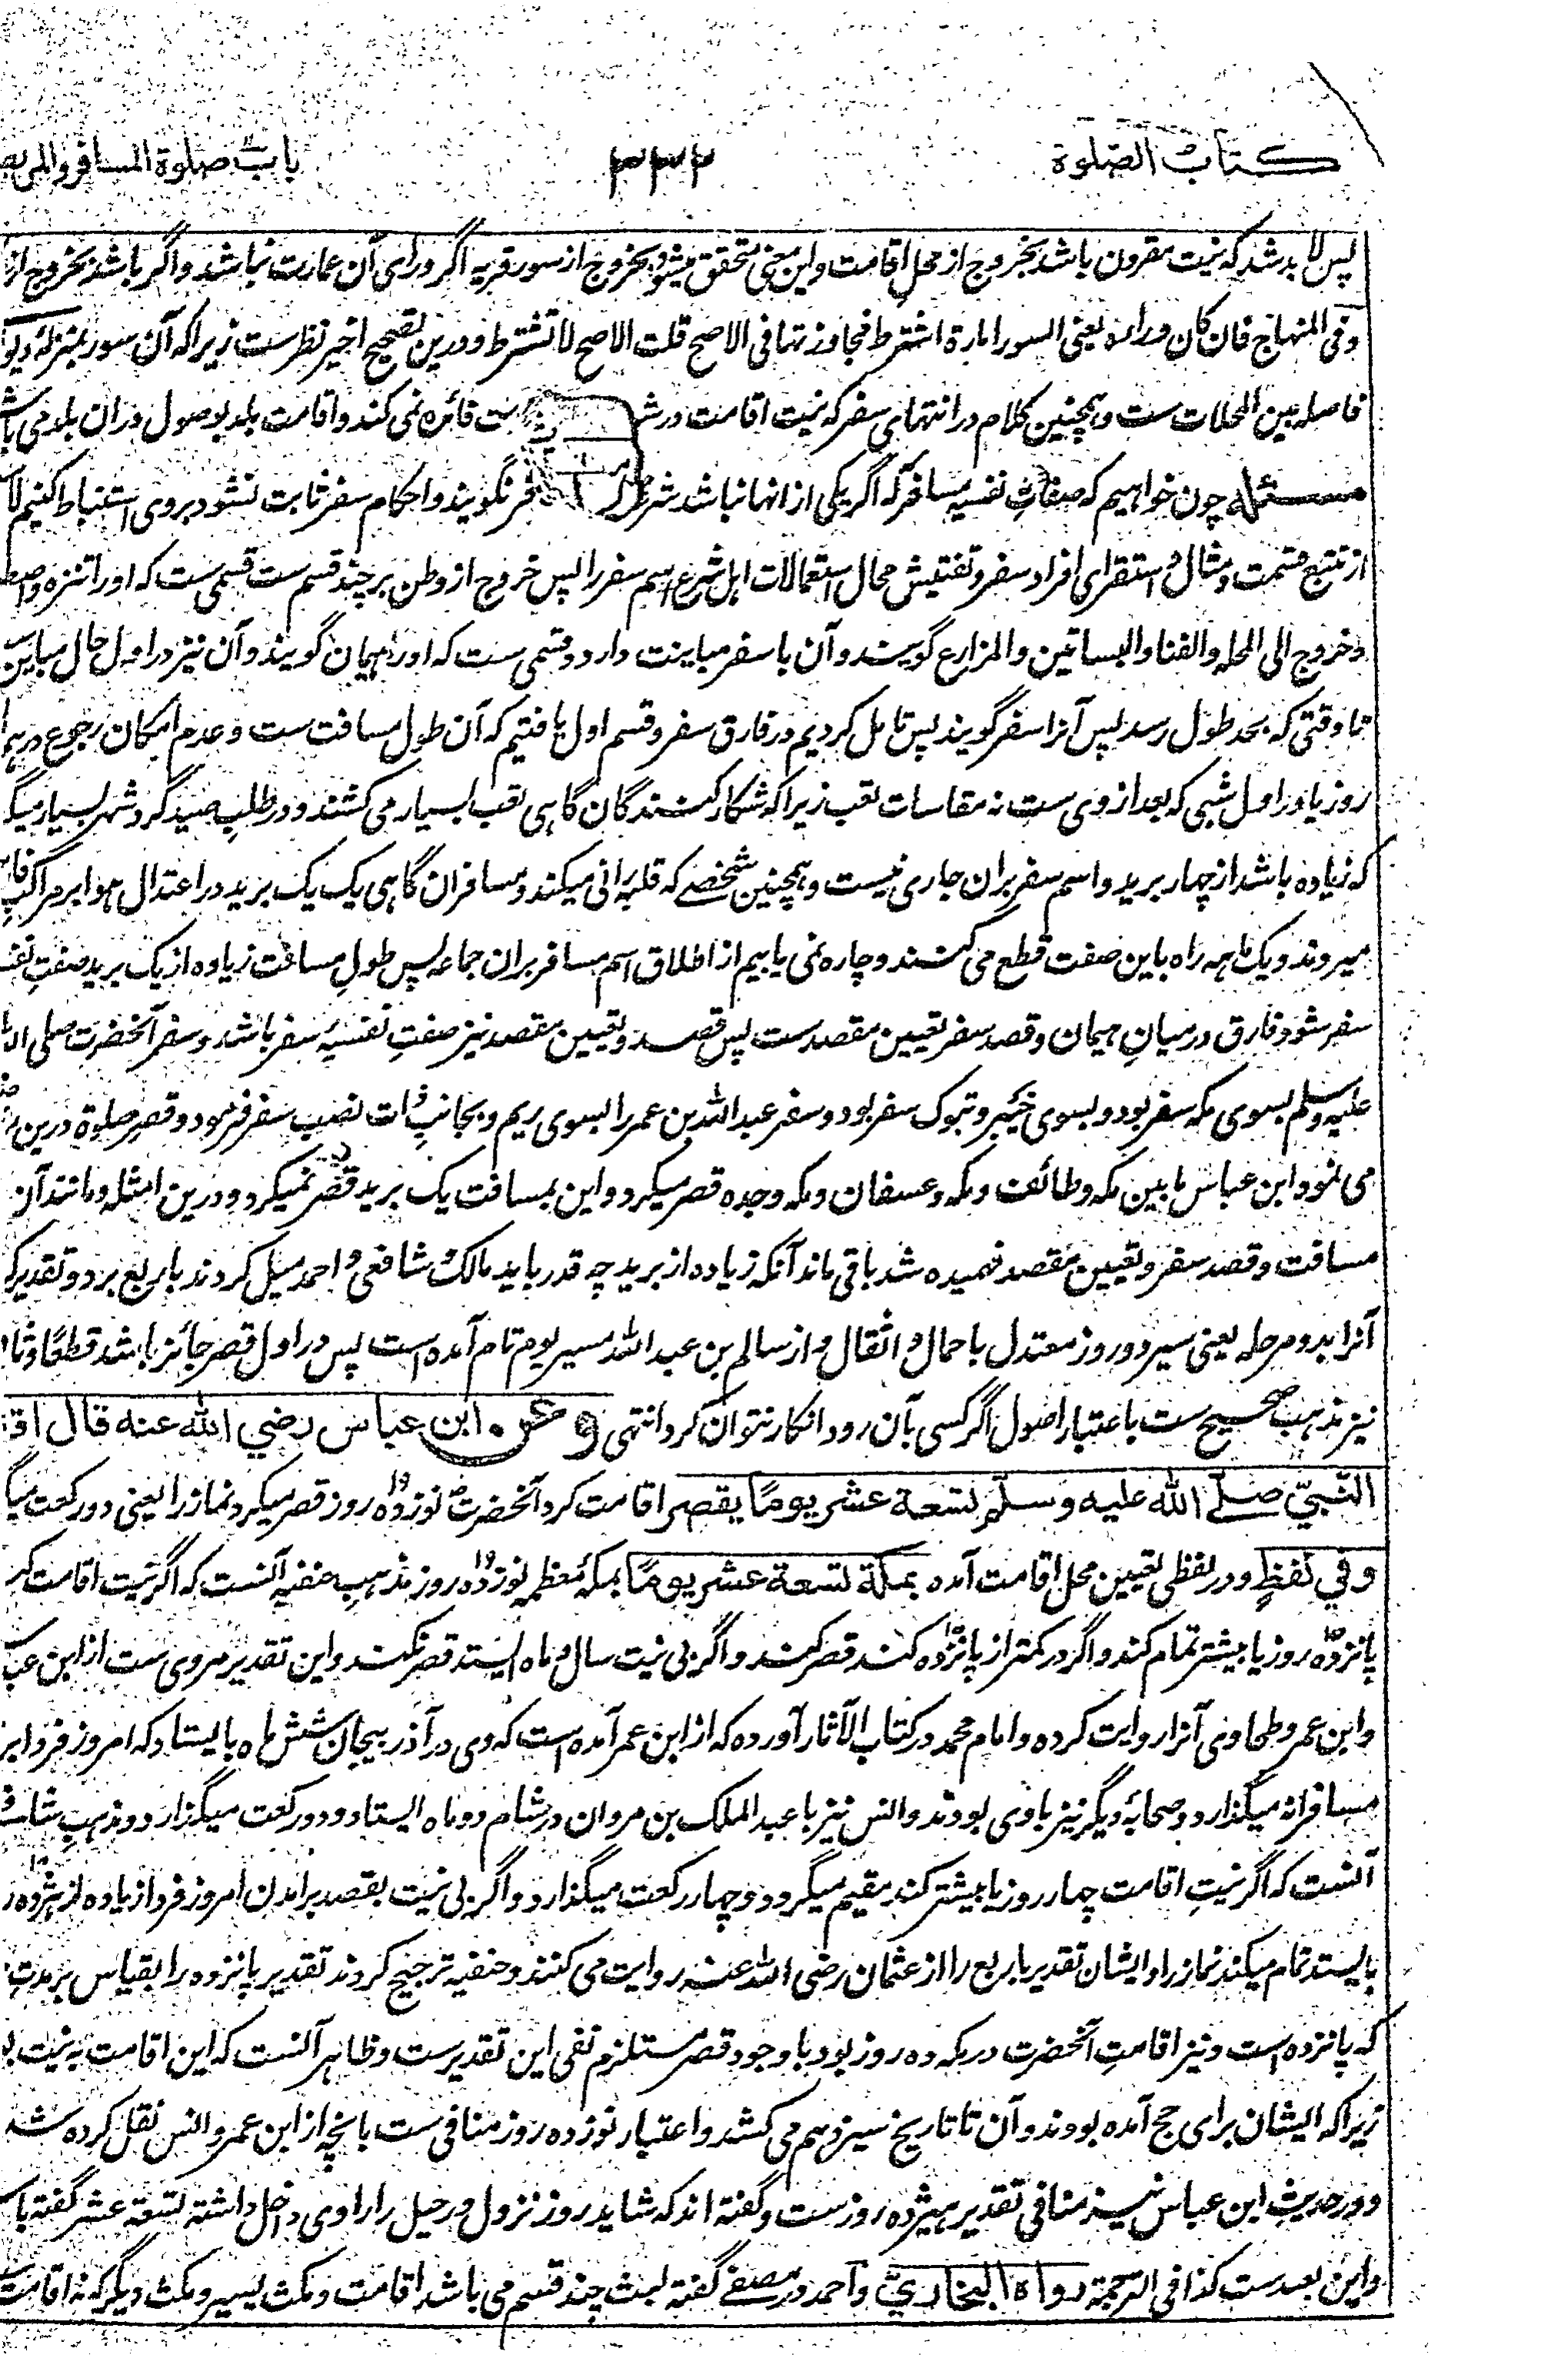 کتاب الصلوة ۳۳۲ باب صلوة المسافر والمریض
پس لا بد شد که نیت مقرون باشد بخروج از محل اقامت و این معنی متحقق میشود بخروج از سور قریه اگر ورای آن عمارت نباشد و اگر باشد بخروج از
و فی المنهاج فان کان وراءه یعنی السور امارة اشترط مجاوزتها فی الاصح قلت الاصح لا تشترط و درین تصحیح اخیر نظرست زیرا که آن سور بمنزلهٔ دیو
فاصله بین المحلات ست و همچنین کلام در انتهای سفر که نیت اقامت در ست فائده نمی کند و اقامت بلد بوصول دران بلد می باش
مسئله چون خواهیم که صفات نفسیه مسافر که اگر یکی از انها نباشد شرعا فر نگویند و احکام سفر ثابت نشود بروی استنباط کنیم لا
از تتبع قسمت و مثال و استقرای افراد سفر و تفتیش محال استعمالات اهل شرع اسم سفر را پس خروج از وطن بر چند قسم ست قسمی ست که اورا تنزه و اصط
و خروج الی المحله و الفنا و البساتین و المزارع گویند و آن با سفر مباینت دارد و قسمی ست که اورا هیمان گویند و آن نیز در اول حال مباین
تا وقتی که بحد طول رسد پس آنرا سفر گویند پس تامل کردیم در فارق سفر و قسم اول یافتیم که آن طول مسافت ست و عدم امکان رجوع در هما
روز یا در اول شبی که بعد از وی ست نه مقاسات تعب زیرا که شکار کنندگان گاهی تعب بسیار می کشند و در طلب صید گرد شهر بسیار میگ
که زیاده باشد از چهار برید و اسم سفر بران جاری نیست و همچنین شخصے که قلبه رانی میکند و مسافران گاهی یک یک برید در اعتدال هوا بر مراکب فا
میروند و یک ماهه راه باین صفت قطع می کنند و چاره نمی یابیم از اطلاق اسم مسافر بران جماعه پس طول مسافت زیاده از یک برید صفت نفس
سفر شود و فارق درمیان هیمان و قصد سفر تعیین مقصد ست پس قصد و تعیین مقصد نیز صفت نفسیه سفر باشد و سفر آنحضرت صلی الله
علیه وسلم بسوی مکه سفر بود و بسوی خیبر و تبوک سفر بود و سفر عبد الله بن عمر را بسوی ریم و بجانب ذات نصب سفر فرمود و قصر صلوة درین
می نمود ابن عباس ما بین مکه و طائف و مکه و عسفان و مکه و جده قصر میکرد و این بمسافت یک برید قصر نمیکرد و درین امثله و مانند آن
مسافت و قصد سفر و تعیین مقصد فهمیده شد باقی ماند آنکه زیاده از برید چه قدر باید مالک و شافعی و احمد میل کردند باربع برد و تقدیر ک
آنرا بدو مرحله یعنی سیر دو روز معتدل باحمال و اثقال و از سالم بن عبد الله مسیر یوم تام آمده است پس در اول قصر جائز باشد قطعًا و ثا
نیز مذهب صحیح ست باعتبار اصول اگر کسی بآن رود انکار نتوان کرد انتهی وعن ابن عباس رضي الله عنه قال اقا
النبيّ صلّى الله عليه وسلّم تسعة عشر يومًا يقصر اقامت کرد آنحضرت نوزده روز قصر میکرد نماز را یعنی دو رکعت میگ
وفي لفظٍ و در لفظی تعیین محل اقامت آمده بمكة تسعة عشر يومًا بمکهٔ معظمه نوزده روز مذهب حنفیه آنست که اگر نیت اقامت کر
پانزده روز یا بیشتر تمام کند و اگر در کمتر از پانزده کند قصر کند و اگر بی نیت سال و ماه ایستد قصر نکند و این تقدیر مروی ست از ابن عب
و ابن عمر و طحاوی آنرا روایت کرده و امام محمد در کتاب الآثار آورده که از ابن عمر آمده است که وی در آذربیجان شش ماه بایستاد که امروز فردا بر
مسافرانه میگذارد و صحابهٔ دیگر نیز با وی بودند و انس نیز با عبد الملک بن مروان در شام دو ماه ایستاد و دو رکعت میگذارد و مذهب شاف
آنست که اگر نیت اقامت چهار روز یا بیشتر کند مقیم میگردد و چهار رکعت میگذارد و اگر بی نیت بقصد برامدن امروز فردا زیاده از هژده ر
بایستد تمام میکند نماز را و ایشان تقدیر باربع را از عثمان رضی الله عنه روایت می کنند و حنفیه ترجیح کردند تقدیر پانزده را بقیاس بر مدت
که پانزده است و نیز اقامت آنحضرت در مکه ده روز بود با وجود قصر مستلزم نفی این تقدیرست و ظاهر آنست که این اقامت به نیت بو
زیرا که ایشان برای حج آمده بودند و آن تا تاریخ سیزدهم می کشد و اعتبار نوزده روز منافی ست بانچه از ابن عمر و انس نقل کرده شد
و در حدیث ابن عباس نیز منافی تقدیر هیژده روزست و گفته اند که شاید روز نزول و رحیل را راوی داخل داشته تسعة عشر گفته با
و این بعیدست کذا فی الترجمة رواه البخاريّ و احمد در مصفے گفته لبث چند قسم می باشد اقامت و مکث یسیر و مکث دیگر که نه اقامت